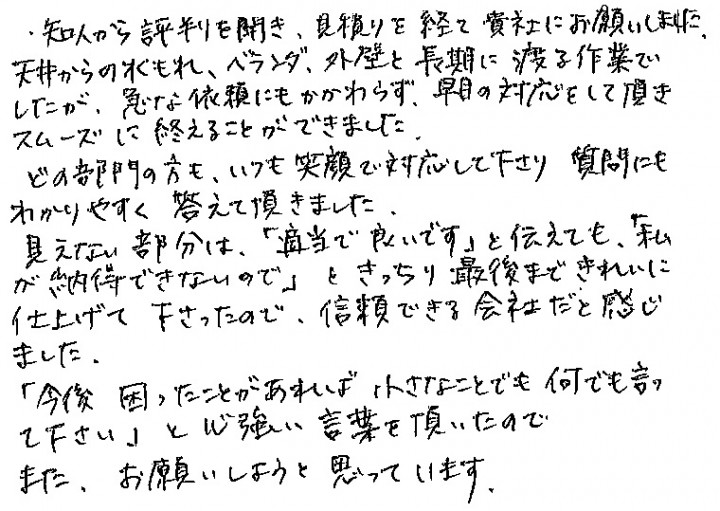 ・知人から評判を聞き、見積りを経て貴社にお願いしました。
天井からの水もれ、ベランダ、外壁と長期に渡る作業で
したが、急な依頼にもかかわらず、早目の対応をして頂き
スムーズに終えることができました。
どの部門の方も、いつも笑顔で対応して下さり 質問にも
わかりやすく 答えて頂きました。
見えない部分は、「適当で良いです」と伝えても、「私
が納得できないので」ときっちり最後まできれいに
仕上げて下さったので、信頼できる会社だと感じ
ました。
「今後 困ったことがあれば 小さなことでも何でも言っ
て下さい」と心強い言葉を頂いたので
また、お願いしようと思っています。